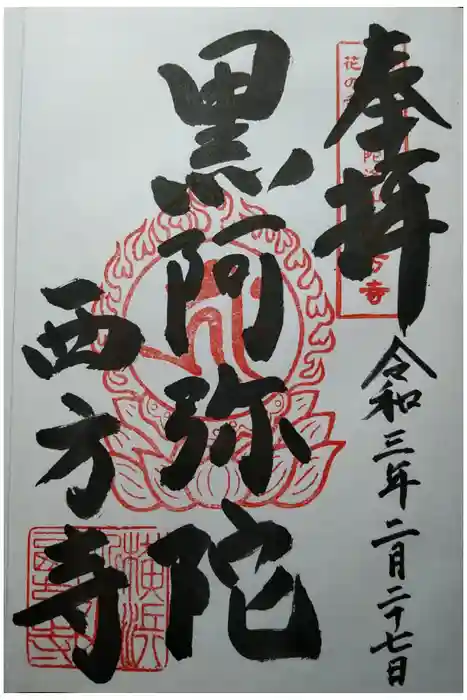 奉拝
令和三年二月二十七日
黒阿弥陀
西方寺
横浜